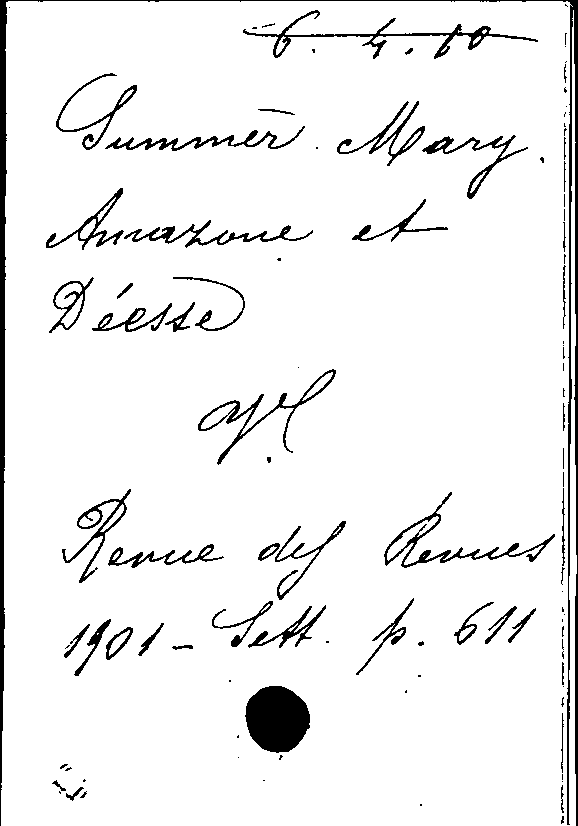 6. 4. 10
Summer Mary.
Amazone et
Déesse
Revue des Revues
1901 - Sett. p. 611